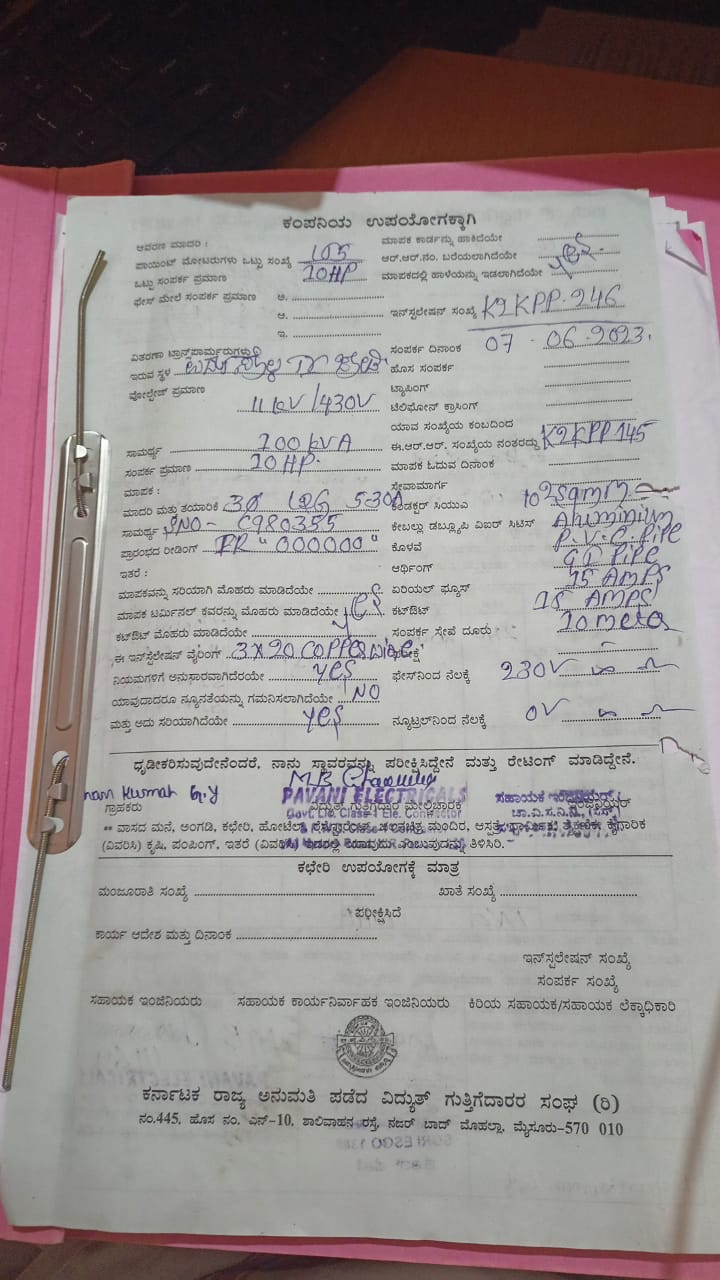 ಕಂಪನಿಯ ಉಪಯೋಗಕ್ಕಾಗಿ
ಆವರಣ ಮಾದರಿ :
ಮಾಪಕ ಕಾರ್ಡನ್ನು ಹಾಕಿದೆಯೇ
ಪಾಯಿಂಟ್ ಮೋಟರುಗಳು ಒಟ್ಟು ಸಂಖ್ಯೆ
ಆರ್.ಆರ್.ನಂ. ಬರೆಯಲಾಗಿದೆಯೇ yes.
ಒಟ್ಟು ಸಂಪರ್ಕ ಪ್ರಮಾಣ 10HP
ಮಾಪಕದಲ್ಲಿ ಹಾಳೆಯನ್ನು ಇಡಲಾಗಿದೆಯೇ
ಫೇಸ್ ಮೇಲೆ ಸಂಪರ್ಕ ಪ್ರಮಾಣ ಅ.
ಆ.
ಇನ್‌ಸ್ಟಲೇಷನ್ ಸಂಖ್ಯೆ K2KPP.246
ಇ.
ವಿತರಣಾ ಟ್ರಾನ್ಸ್‌ಫಾರ್ಮರುಗಳು
ಸಂಪರ್ಕ ದಿನಾಂಕ 07 . 06 . 2023.
ಇರುವ ಸ್ಥಳ
ಹೊಸ ಸಂಪರ್ಕ
ವೋಲ್ಟೇಜ್ ಪ್ರಮಾಣ
ಟ್ಯಾಪಿಂಗ್
11 KV/430V
ಟೆಲಿಫೋನ್ ಕ್ರಾಸಿಂಗ್
ಯಾವ ಸಂಖ್ಯೆಯ ಕಂಬದಿಂದ
ಸಾಮರ್ಥ್ಯ 100 KVA
ಈ.ಆರ್.ಆರ್. ಸಂಖ್ಯೆಯ ನಂತರದ್ದು K2KPP145
ಸಂಪರ್ಕ ಪ್ರಮಾಣ 10 HP.
ಮಾಪಕ ಓದುವ ದಿನಾಂಕ
ಮಾಪಕ :
ಸೇವಾಮಾರ್ಗ
ಮಾದರಿ ಮತ್ತು ತಯಾರಿಕೆ 3Ø L&G 5-30A
ಕಂಡಕ್ಟರ್ ಸಿಯುವಿ 10 sqmm
ಸಾಮರ್ಥ್ಯ SNO - C980355
ಕೇಬಲ್ಲು ಡಬ್ಲ್ಯೂಪಿ ವಿಐರ್ ಸಿಟಿಸ್ Aluminium
ಪ್ರಾರಂಭದ ರೀಡಿಂಗ್ IR "000000"
ಕೊಳವೆ P.V.C. PIPE
ಇತರೆ :
ಆರ್ಥಿಂಗ್ GI PIPE
ಮಾಪಕವನ್ನು ಸರಿಯಾಗಿ ಮೊಹರು ಮಾಡಿದೆಯೇ
ಏರಿಯಲ್ ಫ್ಯೂಸ್ 15 AMPS
ಮಾಪಕ ಟರ್ಮಿನಲ್ ಕವರನ್ನು ಮೊಹರು ಮಾಡಿದೆಯೇ yes
ಕಟ್‌ಔಟ್ 15 AMPS
ಕಟ್‌ಔಟ್ ಮೊಹರು ಮಾಡಿದೆಯೇ
ಸಂಪರ್ಕ ಸೇವೆ ದೂರು 10 meta
ಈ ಇನ್‌ಸ್ಟಲೇಷನ್ ವೈರಿಂಗ್ 3X20 COPPER WIRE
ನಿಯಮಗಳಿಗೆ ಅನುಸಾರವಾಗಿದೆರೆಯೇ yes
ಫೇಸ್‌ನಿಂದ ನೆಲಕ್ಕೆ 230V
ಯಾವುದಾದರೂ ನ್ಯೂನತೆಯನ್ನು ಗಮನಿಸಲಾಗಿದೆಯೇ NO
ಮತ್ತು ಅದು ಸರಿಯಾಗಿದೆಯೇ yes
ನ್ಯೂಟ್ರಲ್‌ನಿಂದ ನೆಲಕ್ಕೆ 0V
ಧೃಡೀಕರಿಸುವುದೇನೆಂದರೆ, ನಾನು ಸ್ಥಾವರವನ್ನು ಪರೀಕ್ಷಿಸಿದ್ದೇನೆ ಮತ್ತು ರೇಟಿಂಗ್ ಮಾಡಿದ್ದೇನೆ.
Kumar G.Y
PAVANI ELECTRICALS
ಸಹಾಯಕ ಇಂಜಿನಿಯರ್
ಗ್ರಾಹಕರು
ವಿದ್ಯುತ್ ಗುತ್ತಿಗೆದಾರ ಮೇಲಿಚಾರಕ
Govt. Lic. Class-I Ele. Contractor
ಚಾ.ವಿ.ಸ.ನಿ.ನಿ.,
** ವಾಸದ ಮನೆ, ಅಂಗಡಿ, ಕಛೇರಿ, ಹೋಟೆಲ್, ರೆಸ್ಟೂರೆಂಟ್, ಚಲನಚಿತ್ರ ಮಂದಿರ, ಆಸ್ಪತ್ರೆ, ಧಾರ್ಮಿಕ, ಶೈಕ್ಷಣಿಕ, ಕೈಗಾರಿಕ
(ವಿವರಿಸಿ) ಕೃಷಿ, ಪಂಪಿಂಗ್, ಇತರೆ (ವಿವರಿಸಿ) ಇದರಲ್ಲಿ ಯಾವುದು ಎಂಬುವುದನ್ನು ತಿಳಿಸಿರಿ.
ಕಛೇರಿ ಉಪಯೋಗಕ್ಕೆ ಮಾತ್ರ
ಮಂಜೂರಾತಿ ಸಂಖ್ಯೆ
ಖಾತೆ ಸಂಖ್ಯೆ
ಪರೀಕ್ಷಿಸಿದೆ
ಕಾರ್ಯ ಆದೇಶ ಮತ್ತು ದಿನಾಂಕ
ಇನ್‌ಸ್ಟಲೇಷನ್ ಸಂಖ್ಯೆ
ಸಂಪರ್ಕ ಸಂಖ್ಯೆ
ಸಹಾಯಕ ಇಂಜಿನಿಯರು
ಸಹಾಯಕ ಕಾರ್ಯನಿರ್ವಾಹಕ ಇಂಜಿನಿಯರು
ಕಿರಿಯ ಸಹಾಯಕ/ಸಹಾಯಕ ಲೆಕ್ಕಾಧಿಕಾರಿ
ಕರ್ನಾಟಕ ರಾಜ್ಯ ಅನುಮತಿ ಪಡೆದ ವಿದ್ಯುತ್ ಗುತ್ತಿಗೆದಾರರ ಸಂಘ (ರಿ)
ನಂ.445, ಹೊಸ ನಂ. ಎನ್-10, ಶಾಲಿವಾಹನ ರಸ್ತೆ, ನಜರ್ ಬಾದ್ ಮೊಹಲ್ಲಾ, ಮೈಸೂರು-570 010